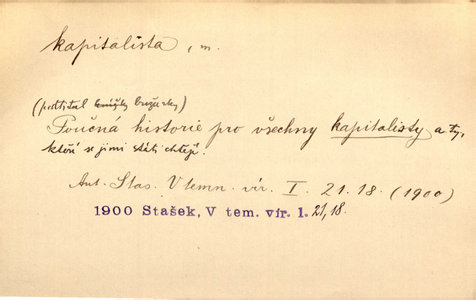 kapitalista, m.
(podtitul knížky brožurky)
Poučná historie pro všechny kapitalisty a ty,
kteří se jimi státi chtějí.
Ant. Stas. V temn. vír. I. 21.18. (1900)
1900 Stašek, V tem. vír. 1. 21,18.